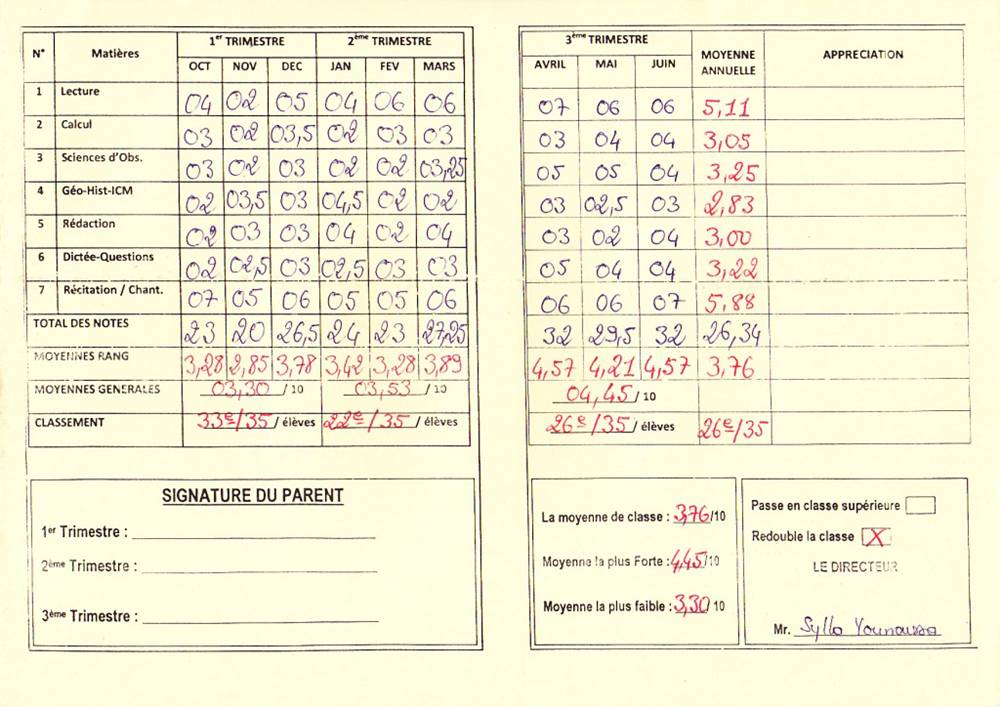 N° Matières 1er TRIMESTRE 2ème TRIMESTRE
OCT NOV DEC JAN FEV MARS
1 Lecture 04 02 05 04 06 06
2 Calcul 03 02 03,5 02 03 03
3 Sciences d'Obs. 03 02 03 02 02 03,25
4 Géo-Hist-ICM 02 03,5 03 04,5 02 02
5 Rédaction 02 03 03 04 02 04
6 Dictée-Questions 02 02,5 03 02,5 03 03
7 Récitation / Chant. 07 05 06 05 05 06
TOTAL DES NOTES 23 20 26,5 24 23 27,25
MOYENNES RANG 3,28 2,85 3,78 3,42 3,28 3,89
MOYENNES GENERALES 03,30 / 10 03,53 / 10
CLASSEMENT 33e/35 / élèves 22e/35 / élèves
SIGNATURE DU PARENT
1er Trimestre :
2ème Trimestre :
3ème Trimestre :
3ème TRIMESTRE MOYENNE ANNUELLE APPRECIATION
AVRIL MAI JUIN
07 06 06 5,11
03 04 04 3,05
05 05 04 3,25
03 02,5 03 2,83
03 02 04 3,00
05 04 04 3,22
06 06 07 5,88
32 29,5 32 26,34
4,57 4,21 4,57 3,76
04,45 / 10
26e/35 / élèves 26e/35
La moyenne de classe : 3,76/10
Moyenne la plus Forte : 4,45/10
Moyenne la plus faible : 3,30/10
Passe en classe supérieure
Redouble la classe X
LE DIRECTEUR
Mr. Sylla Younoussa